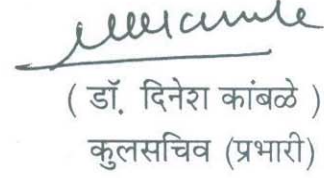 ( डॉ. दिनेश कांबळे )
कुलसचिव (प्रभारी)